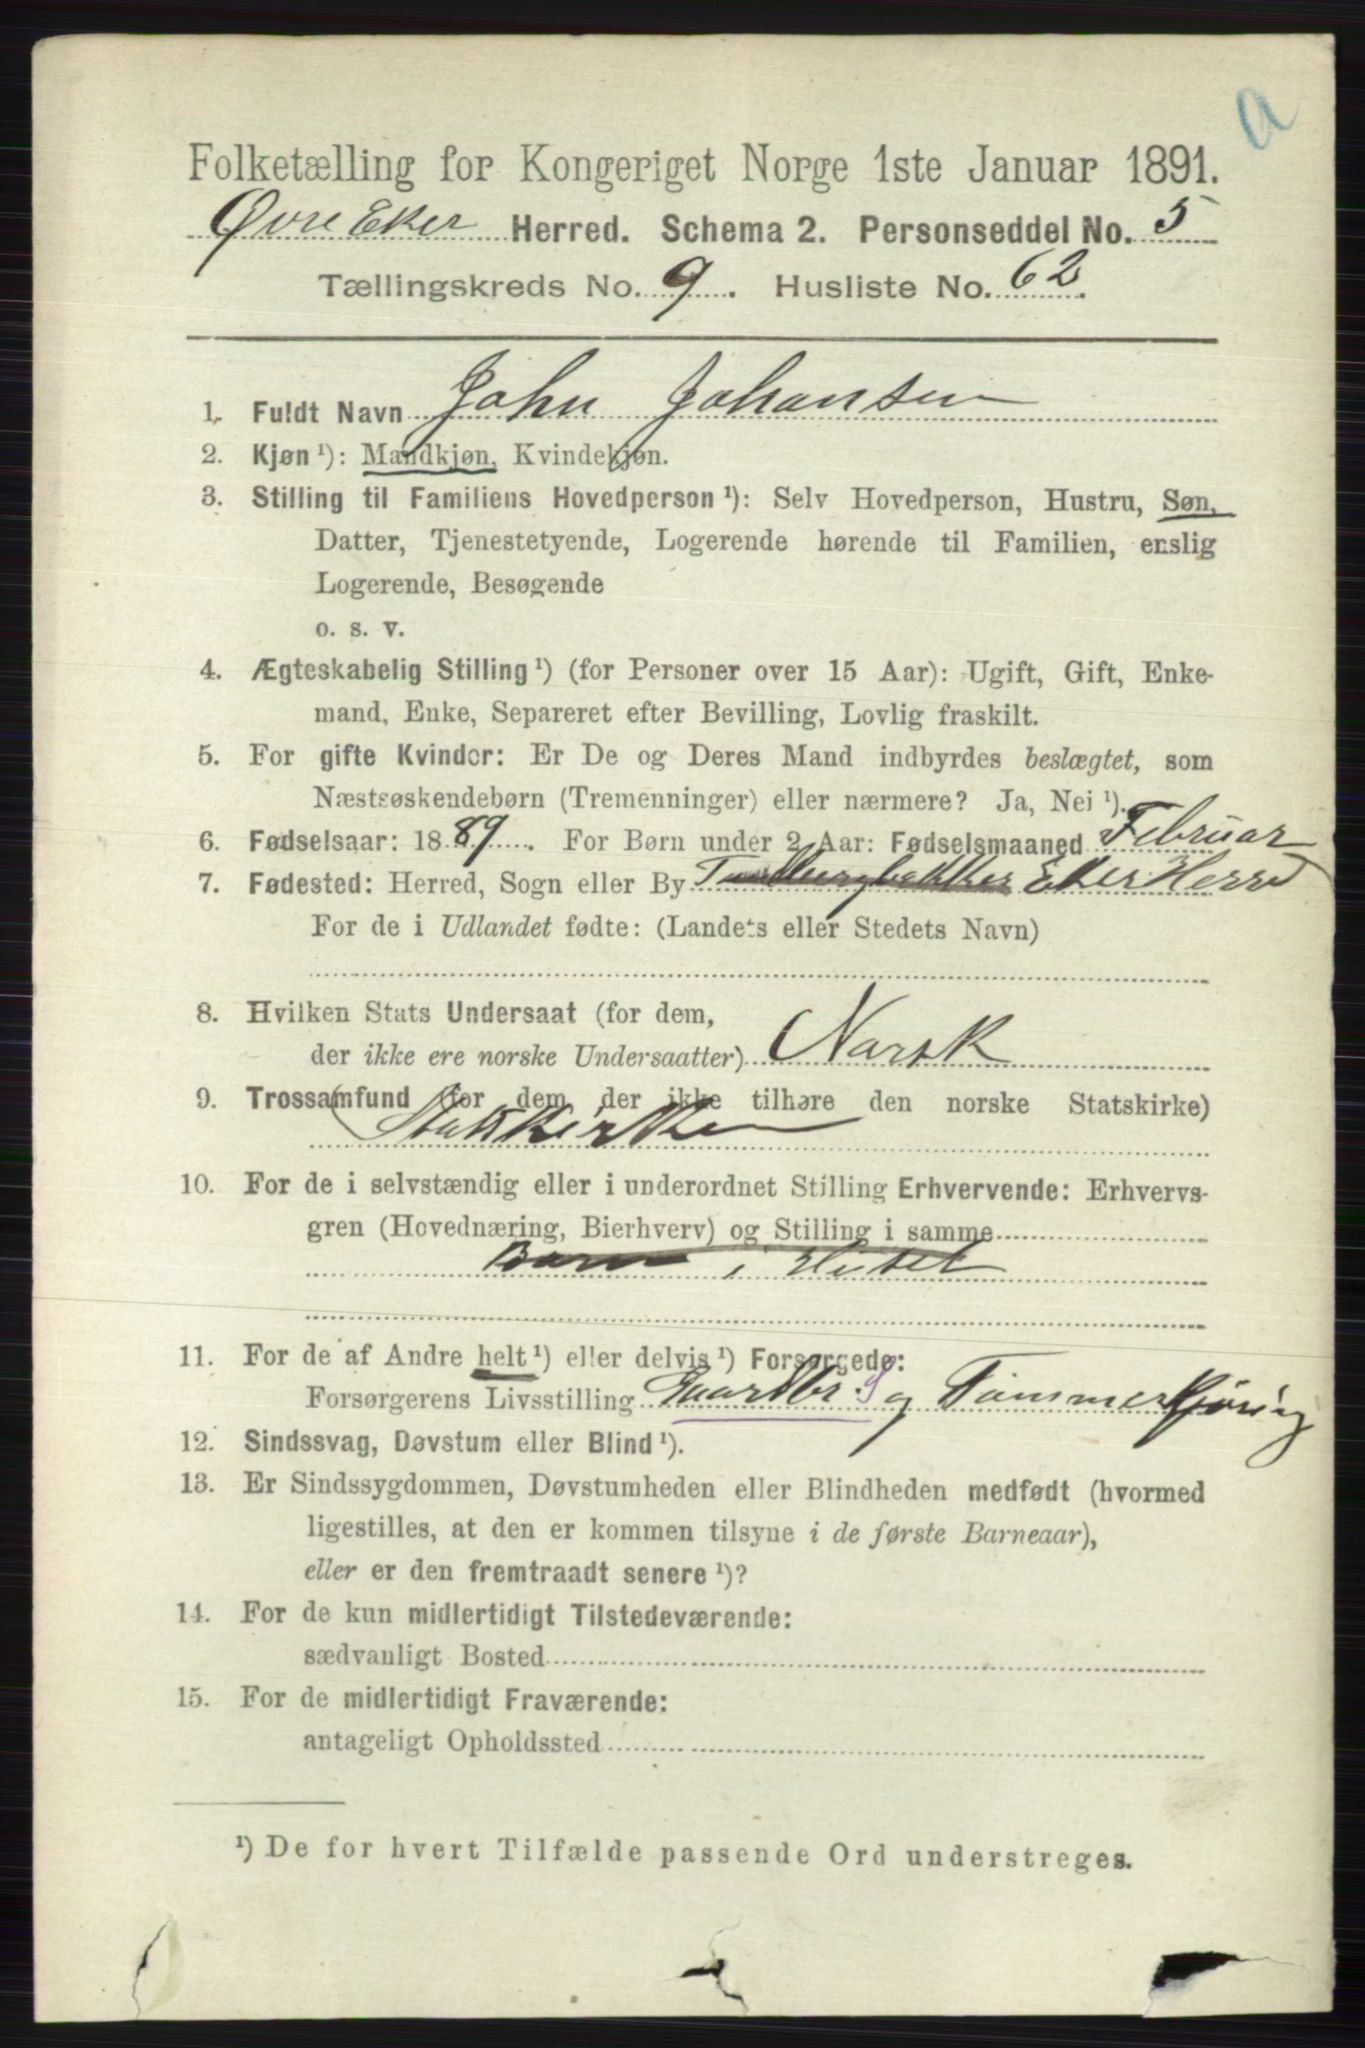 a
Folketælling for Kongeriget Norge 1ste Januar 1891.
Øvre Eker Herred. Schema 2. Personseddel No. 5
Tællingskreds No. 9. Husliste No. 62.
1. Fuldt Navn John Johansen
2. Kjøn ¹): Mandkjøn, Kvindekjøn.
3. Stilling til Familiens Hovedperson ¹): Selv Hovedperson, Hustru, Søn,
Datter, Tjenestetyende, Logerende hørende til Familien, enslig
Logerende, Besøgende
o. s. v.
4. Ægteskabelig Stilling ¹) (for Personer over 15 Aar): Ugift, Gift, Enke-
mand, Enke, Separeret efter Bevilling, Lovlig fraskilt.
5. For gifte Kvinder: Er De og Deres Mand indbyrdes beslægtet, som
Næstsøskendebørn (Tremenninger) eller nærmere? Ja, Nei ¹).
6. Fødselsaar: 1889. For Børn under 2 Aar: Fødselsmaaned Februar
7. Fødested: Herred, Sogn eller By Eker Herred
For de i Udlandet fødte: (Landets eller Stedets Navn)
8. Hvilken Stats Undersaat (for dem,
der ikke ere norske Undersaatter) Norsk
9. Trossamfund (for dem der ikke tilhøre den norske Statskirke)
Statskirken
10. For de i selvstændig eller i underordnet Stilling Erhvervende: Erhvervs-
gren (Hovednæring, Bierhverv) og Stilling i samme
Barn i Huset
11. For de af Andre helt ¹) eller delvis ¹) Forsørgede:
Forsørgerens Livsstilling Gaardbr. S og Tømmerkjøring
12. Sindssvag, Døvstum eller Blind ¹).
13. Er Sindssygdommen, Døvstumheden eller Blindheden medfødt (hvormed
ligestilles, at den er kommen tilsyne i de første Barneaar),
eller er den fremtraadt senere ¹)?
14. For de kun midlertidigt Tilstedeværende:
sædvanligt Bosted
15. For de midlertidigt Fraværende:
antageligt Opholdssted
¹) De for hvert Tilfælde passende Ord understreges.